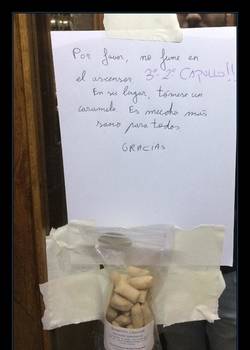 Por favor, no fume en
el ascensor 3º-2º CAPULLO!!
En su lugar, tómese un
caramelo. Es mucho más
sano para todos
GRACIAS